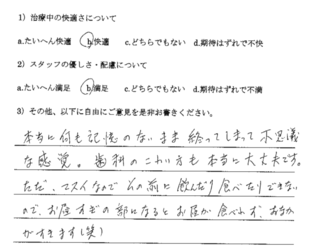 1）治療中の快適さについて
a.たいへん快適　b.快適　c.どちらでもない　d.期待はずれで不快
2）スタッフの優しさ・配慮について
a.たいへん満足　b.満足　c.どちらでもない　d.期待はずれで不満
3）その他、以下に自由にご意見を是非お書きください。
本当に何も記憶のないまま終ってしまって不思議
な感覚。歯科のこわい方も本当に大丈夫です。
ただ、マスイなのでその前に飲んだり食べたりできない
ので、お昼すぎの部になるとお昼が食べれず、おなか
がすきます(笑)